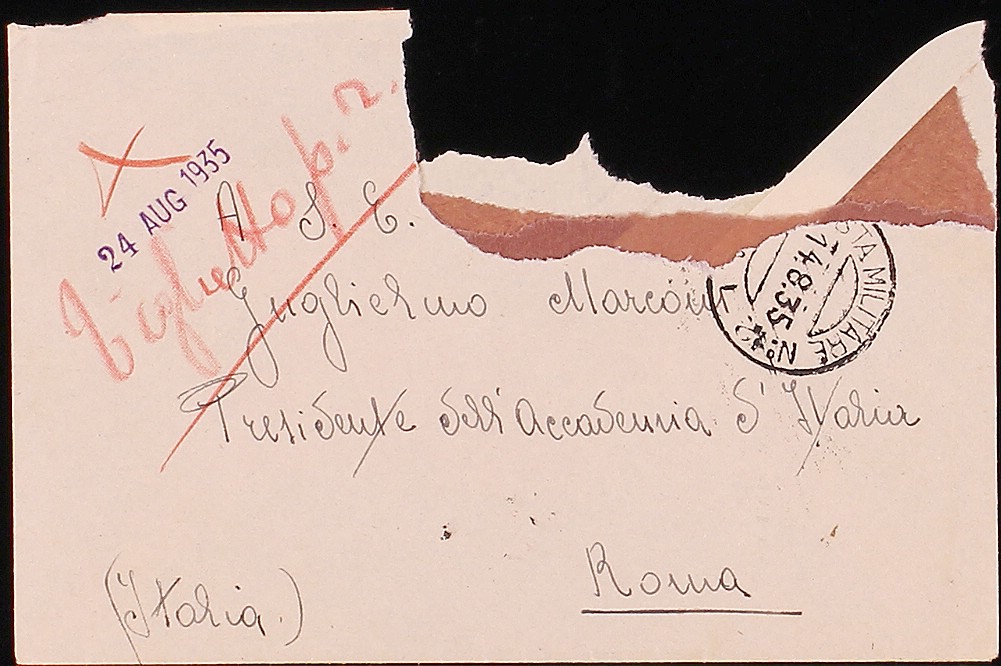 24 AUG 1935
Biglietto p. r.
A S. E.
Guglielmo Marconi
Presidente dell'Accademia d'Italia
Roma
(Italia.)
STA MILITARE Nº 12
14.8.35